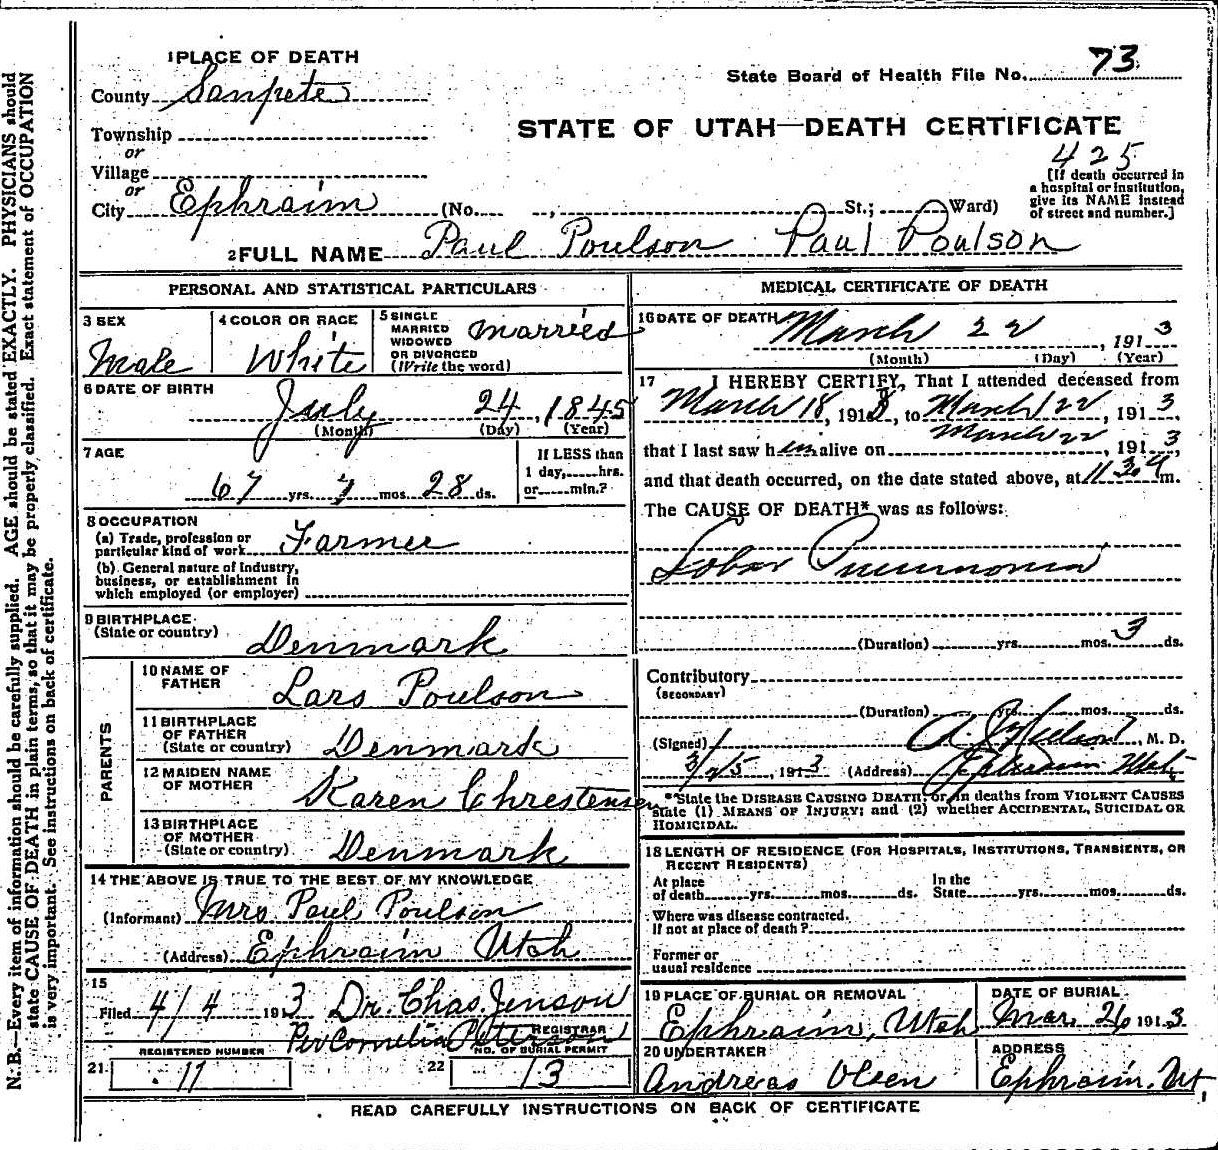 1 PLACE OF DEATH
County Sanpete
Township
or
Village
or
City Ephraim (No. , St.; Ward)
State Board of Health File No. 73
STATE OF UTAH—DEATH CERTIFICATE
425
[If death occurred in
a hospital or institution,
give its NAME instead
of street and number.]
2 FULL NAME Paul Poulson Paul Poulson
PERSONAL AND STATISTICAL PARTICULARS
3 SEX
Male
4 COLOR OR RACE
White
5 SINGLE
MARRIED
WIDOWED
OR DIVORCED
(Write the word)
Married
6 DATE OF BIRTH
July 24, 1845
(Month) (Day) (Year)
7 AGE
67 yrs. 7 mos. 28 ds.
If LESS than
1 day,......hrs.
or......min.?
8 OCCUPATION
(a) Trade, profession or
particular kind of work Farmer
(b) General nature of Industry,
business, or establishment in
which employed (or employer)
9 BIRTHPLACE
(State or country) Denmark
PARENTS
10 NAME OF
FATHER Lars Poulson
11 BIRTHPLACE
OF FATHER
(State or country) Denmark
12 MAIDEN NAME
OF MOTHER Karen Chrestensen
13 BIRTHPLACE
OF MOTHER
(State or country) Denmark
14 THE ABOVE IS TRUE TO THE BEST OF MY KNOWLEDGE
(Informant) Mrs Paul Poulson
(Address) Ephraim Utah
15
Filed 4/4 1913 Dr. Chas. Jenson
Per Cornelia Petterson
REGISTRAR
REGISTERED NUMBER
21. 11
NO. OF BURIAL PERMIT
22 13
MEDICAL CERTIFICATE OF DEATH
16 DATE OF DEATH
March 22, 1913
(Month) (Day) (Year)
17 I HEREBY CERTIFY, That I attended deceased from
March 18, 191, to March 22, 1913,
that I last saw him alive on March 22, 1913,
and that death occurred, on the date stated above, at 11 30 m.
The CAUSE OF DEATH* was as follows:
Lobar Pneumonia
(Duration) yrs. mos. 3 ds.
Contributory
(SECONDARY)
(Duration) yrs. mos. ds.
(Signed) A. J. Nielson, M. D.
3/25, 1913 (Address) Ephraim Utah
*State the DISEASE CAUSING DEATH; or, in deaths from VIOLENT CAUSES
state (1) MEANS OF INJURY; and (2) whether ACCIDENTAL, SUICIDAL OR
HOMICIDAL.
18 LENGTH OF RESIDENCE (FOR HOSPITALS, INSTITUTIONS, TRANSIENTS, OR
RECENT RESIDENTS)
At place
of death......yrs......mos......ds.
In the
State......yrs......mos......ds.
Where was disease contracted.
If not at place of death?
Former or
usual residence
19 PLACE OF BURIAL OR REMOVAL
Ephraim, Utah
DATE OF BURIAL
Mar. 26 1913
20 UNDERTAKER
Andreas Olsen
ADDRESS
Ephraim, Ut
READ CAREFULLY INSTRUCTIONS ON BACK OF CERTIFICATE
N. B.—Every item of information should be carefully supplied. AGE should be stated EXACTLY. PHYSICIANS should
state CAUSE OF DEATH in plain terms, so that it may be properly classified. Exact statement of OCCUPATION
is very important. See instructions on back of certificate.